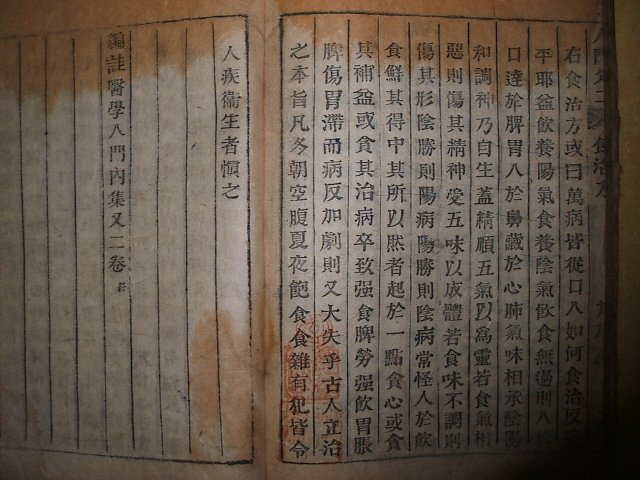 食治方
右食治方或曰萬病皆從口入如何食治反
平耶益飲養陽氣食養陰氣飲食無過則入於
口達於脾胃入於鼻藏於心肺氣味相承陰陽
和調神乃自生蓋精順五氣以爲靈若食氣相
惡則傷其精神受五味以成體若食味不調則
傷其形陰勝則陽病陽勝則陰病常怪人於飲
食鮮其得中其所以然者起於一點貪心或貪
其補益或貪其治病卒致强食脾勞强飲胃脹
脾傷胃滯而病反加劇則又大失乎古人立治
之本旨凡冬朝空腹夏夜飽食食雜有犯皆令
人疾衛生者愼之
編註醫學入門內集又二卷 終